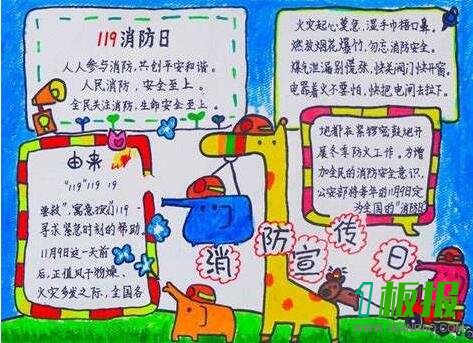 119消防日
人人参与消防，共创平安和谐。
人民消防，安全至上。
全民关注消防，生命安全至上。
火灾起心莫急，湿手巾捂口鼻。
燃放烟花爆竹，勿忘消防安全。
煤气泄漏别慌张，快关阀门快开窗。
电器着火不要怕，快把电闸去拉下。
由来
"119"119 19
警救"，寓意我们119
寻求紧急时刻的帮助。
11月9日这一天前
后，正值风干物燥、
火灾多发之际，全国各
地都在紧锣密鼓地开
展冬季防火工作。为增
加全民的消防安全意识，
公安部将每年的11月9日定
为全国的"消防日
消防宣传日
板报